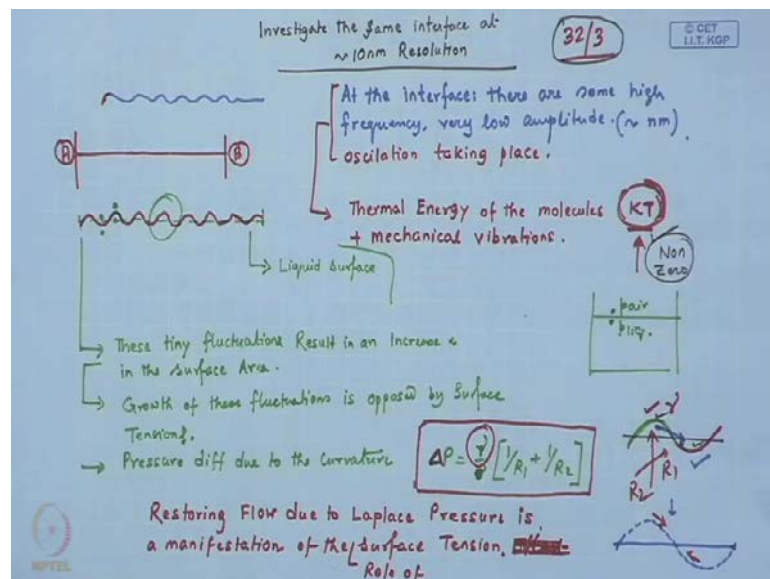 Investigate the same interface at
~ 10nm Resolution
32/3
© CET
I.I.T. KGP
At the interface: there are some high
frequency, very low amplitude. (~ nm)
oscilation taking place.
A
B
Thermal Energy of the molecules
+ mechanical vibrations.
KT
Non
Zero
Liquid Surface
Pair
Pliq.
These tiny fluctuations Result in an Increase
in the Surface Area.
Growth of these fluctuations is opposed by Surface
Tension.
Pressure diff due to the Curvature
ΔP = γ [1/R1 + 1/R2]
γ
R2
R1
Restoring Flow due to Laplace Pressure is
a manifestation of the Surface Tension.
Role of
NPTEL